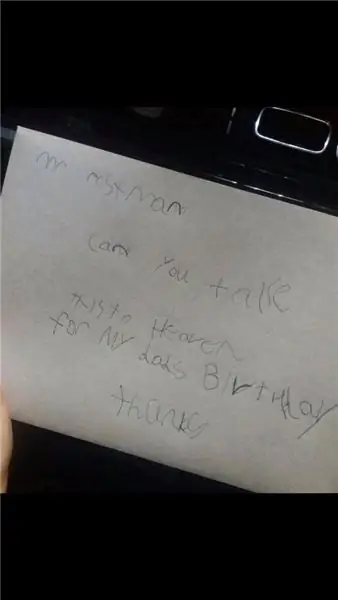 mr Postman
can You take
this to Heaven
for My dads Birthday
thanks